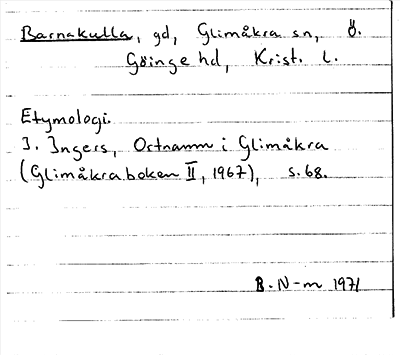 Barnakulla, gd, Glimåkra sn, Ö.
Göinge hd, Krist. l.
Etymologi.
I. Ingers, Ortnamn i Glimåkra
(Glimåkraboken II, 1967), s. 68.
B. N-m 1971